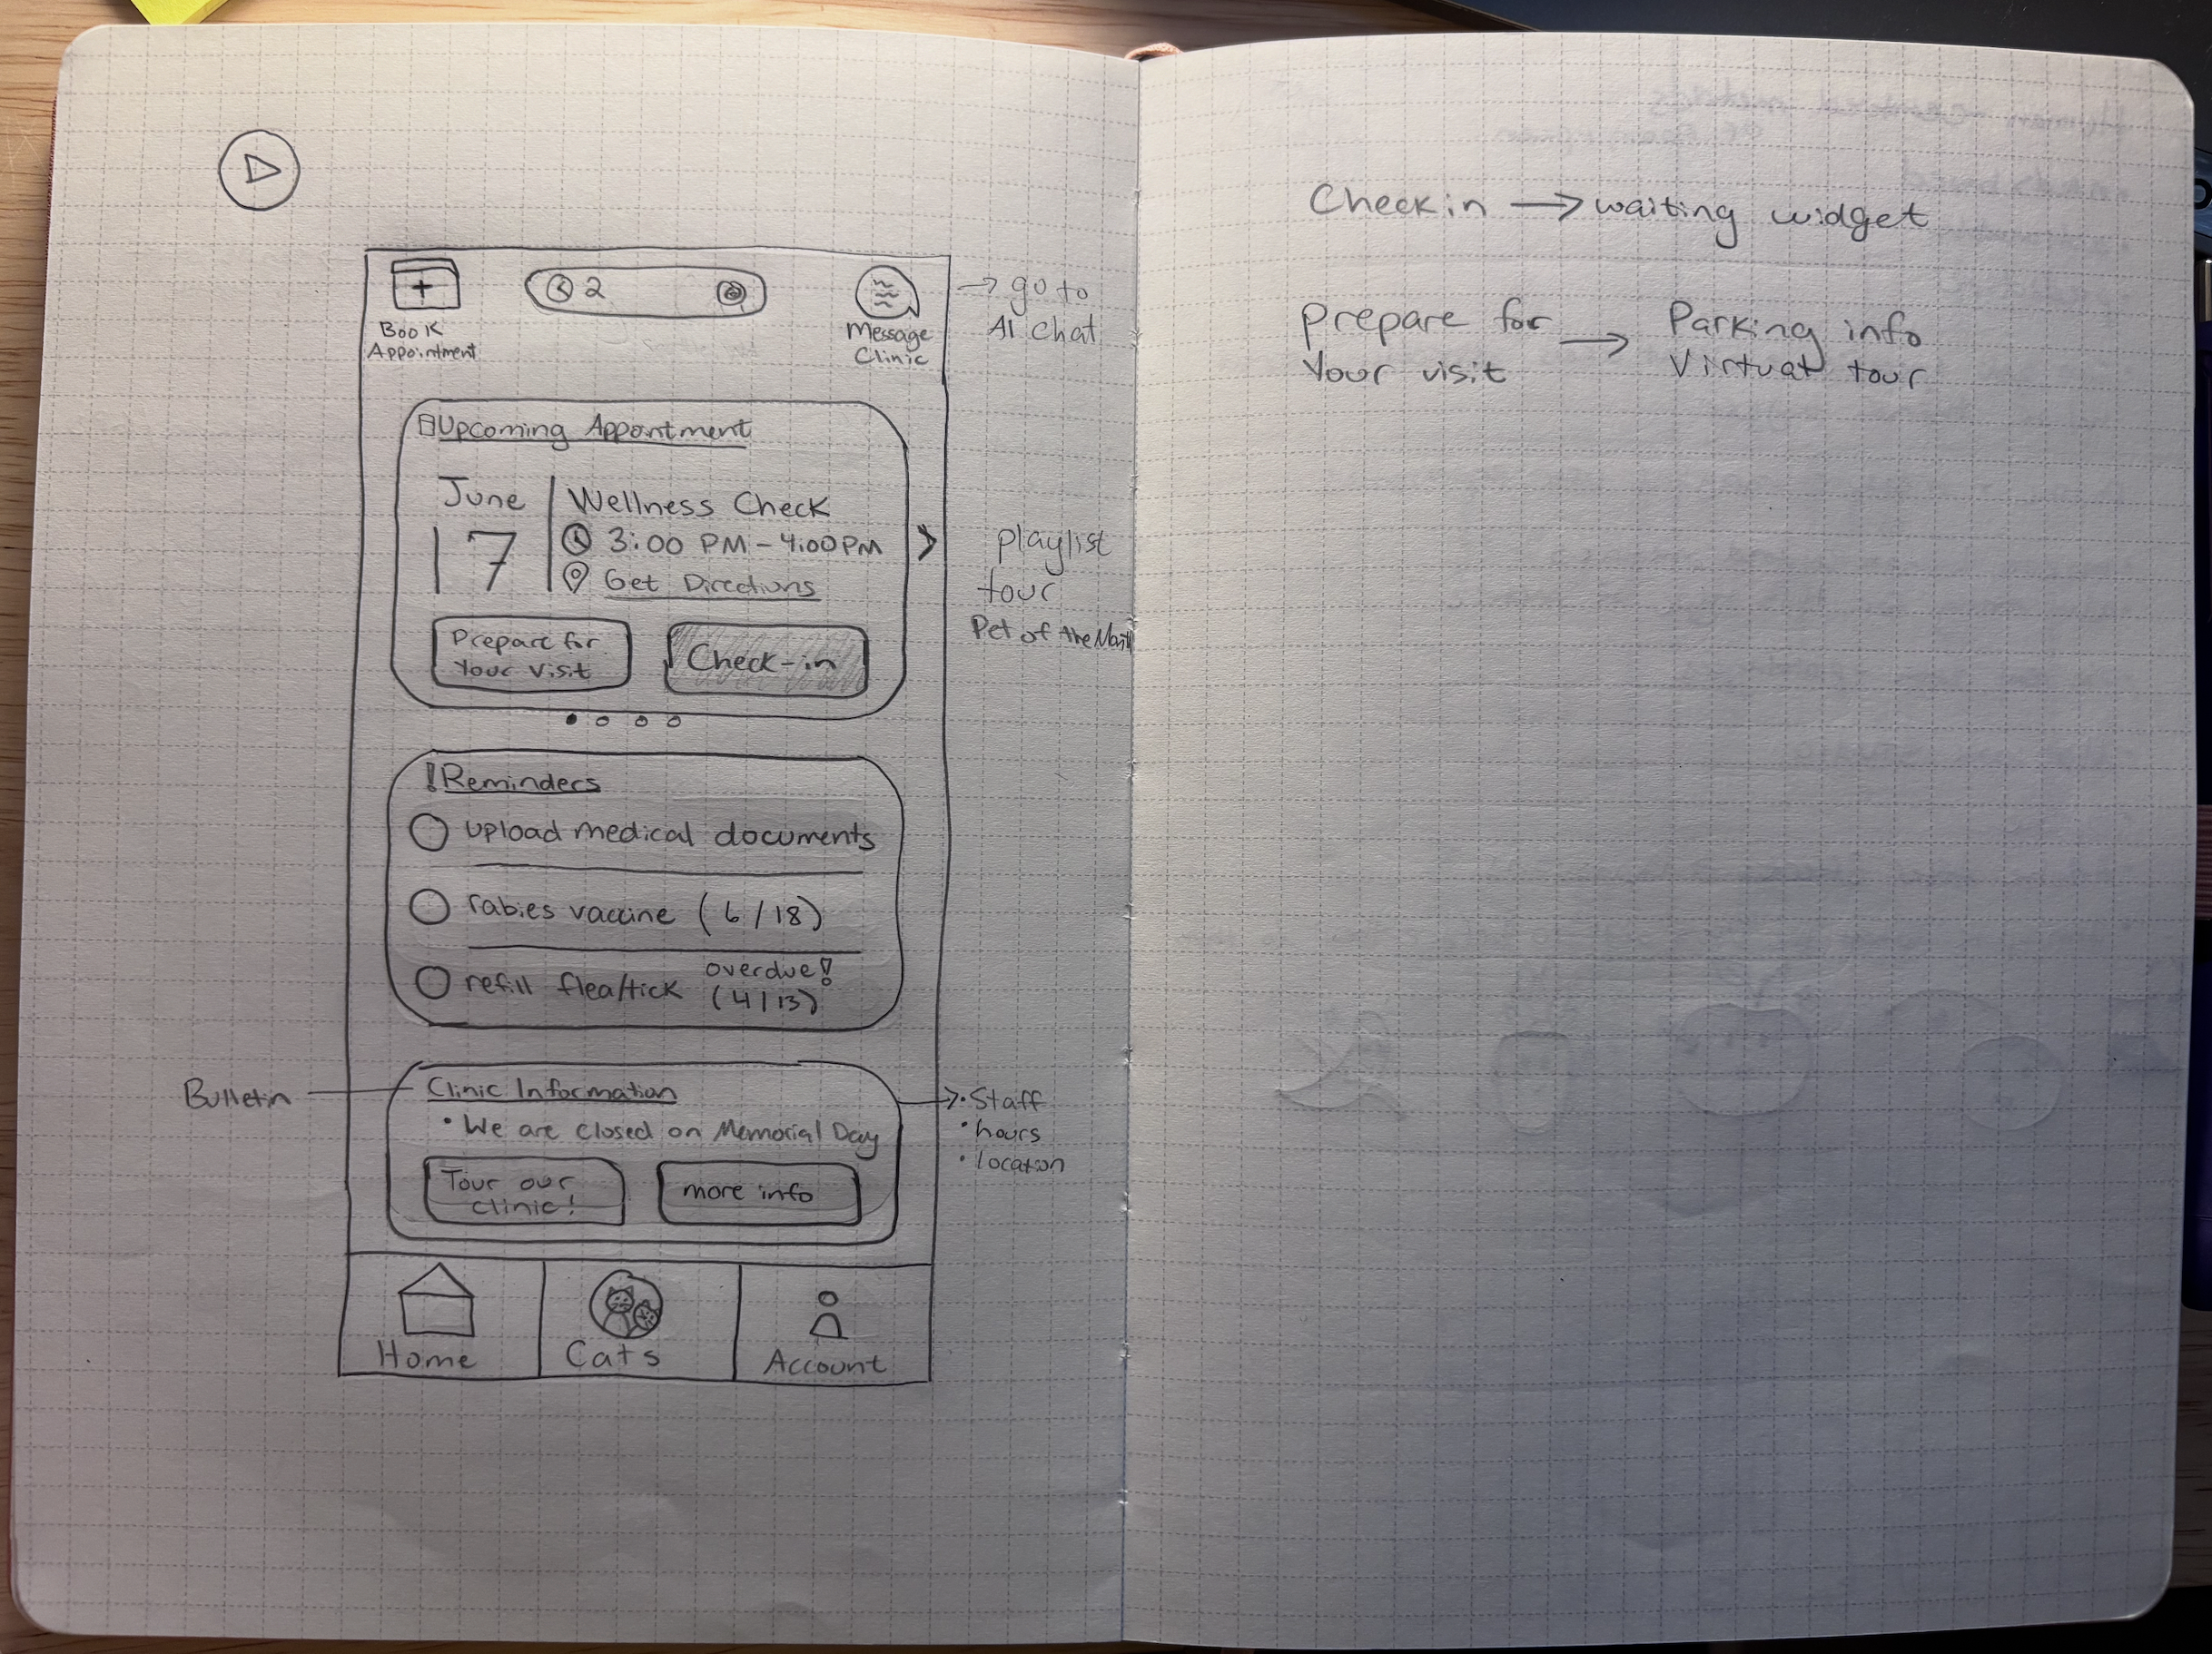 2
Book
Appointment
Message
Clinic
→ go to
AI chat
Upcoming Appointment
June
17
Wellness Check
3:00 PM - 4:00 PM
Get Directions
Prepare for
Your Visit
Check-in
>
playlist
tour
Pet of the
! Reminders
upload medical documents
rabies vaccine (6/18)
refill flea/tick
overdue!
(4/13)
Bulletin
Clinic Information
• We are closed on Memorial Day
Tour our
clinic!
more info
• Staff
• hours
• location
Home
Cats
Account
Check in → waiting widget
Prepare for
Your visit
→
Parking info
Virtual tour